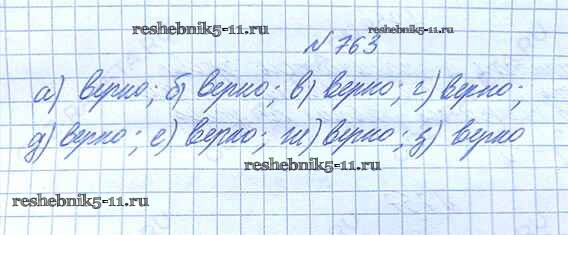 reshebnik5-11.ru
reshebnik5-11.ru
№ 763
а) верно; б) верно; в) верно; г) верно;
д) верно; е) верно; ж) верно; з) верно
reshebnik5-11.ru
reshebnik5-11.ru